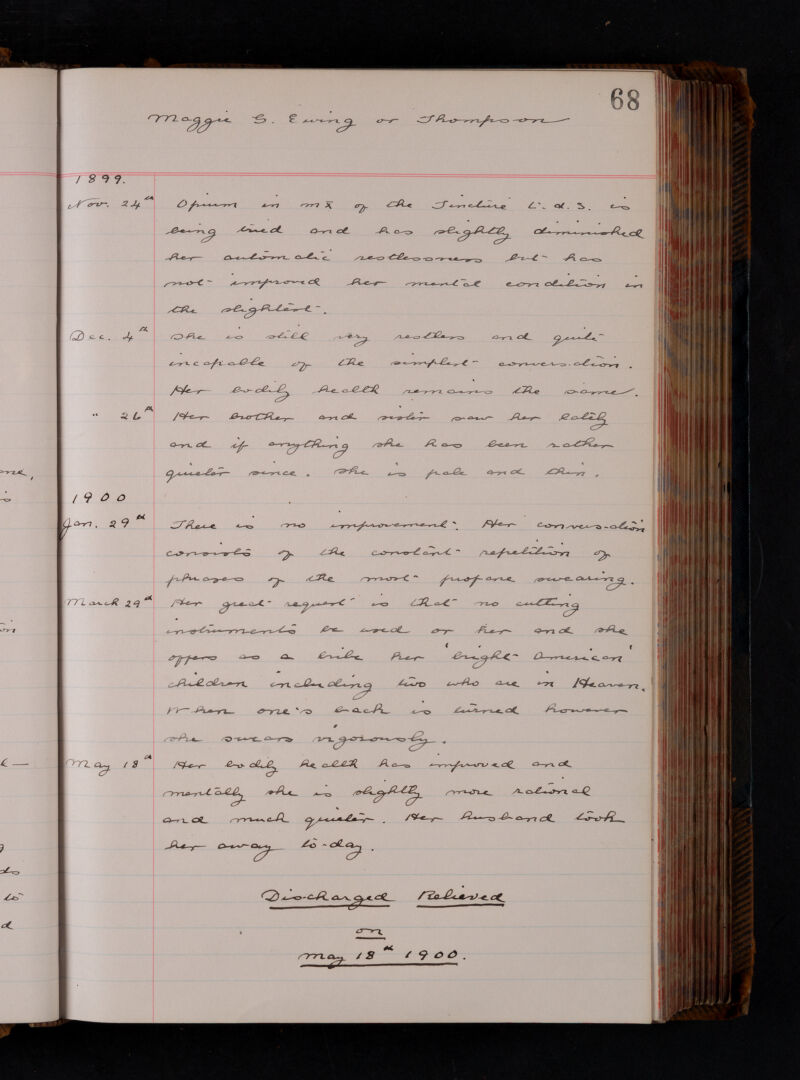 68
Maggie G. Ewing or Thompson
1899.
Nov. 24th Opium in mx of the Tincture t.d.s. is
being tried and has slightly diminished
her automatic restlessness but has
not improved her mental condition in
the slightest.
Dec. 4th She is still very restless and quite
incapable of the simplest conversation.
Her bodily health remains the same.
" 26th Her brother and sister saw her lately
and if anything she has been rather
quieter since. She is pale and thin.
1900
Jan. 29th There is no improvement. Her conversation
consists of the constant repetition of
phrases of the most profane swearing.
March 29th Her great request is that no cutting
instruments be used or her and she
offers as a bribe her 'bright American'
children including two who are in Heaven.
When one's back is turned however
she swears vigorously.
May 18th Her bodily health has improved and
mentally she is slightly more rational
and much quieter. Her husband took
her away to-day.
Discharged Relieved
on
May 18th 1900.